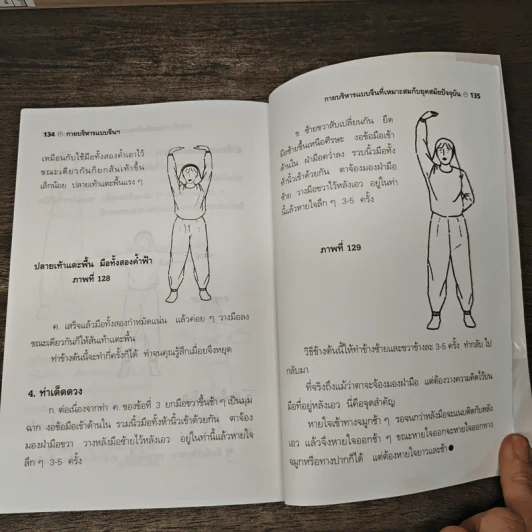 134 กายบริหารแบบจีนฯ
เหมือนกับใช้มือทั้งสองค้ำเอาไว้
ขณะเดียวกันก็ยกส้นเท้าขึ้น
เล็กน้อย ปลายเท้าแตะพื้นแรง ๆ
ปลายเท้าแตะพื้น มือทั้งสองค้ำฟ้า
ภาพที่ 128
ค. เสร็จแล้วมือทั้งสองกำหมัดแน่น แล้วค่อย ๆ วางมือลง
ขณะเดียวกันก็ให้ส้นเท้าแตะพื้น
ท่าข้างต้นนี้จะทำกี่ครั้งก็ได้ ทำจนคุณรู้สึกเมื่อยจึงหยุด
4. ท่าเด็ดดวง
ก. ต่อเนื่องจากท่า ค. ของข้อที่ 3 ยกมือขวาขึ้นช้า ๆ เป็นมุม
ฉาก งอข้อมือเข้าด้านใน รวมนิ้วมือทั้งห้านิ้วเข้าด้วยกัน ตาจ้อง
มองฝ่ามือขวา วางหลังมือซ้ายไว้หลังเอว อยู่ในท่านี้แล้วหายใจ
ลึก ๆ 3-5 ครั้ง
กายบริหารแบบจีนที่เหมาะสมกับยุคสมัยปัจจุบัน 135
ข. ซ้ายขวาสับเปลี่ยนกัน ยืด
มือซ้ายขึ้นเหนือศีรษะ งอข้อมือเข้า
ด้านใน ฝ่ามือคว่ำลง รวบนิ้วมือทั้ง
ห้านิ้วเข้าด้วยกัน ตาจ้องมองฝ่ามือ
ซ้าย วางมือขวาไว้หลังเอว อยู่ในท่า
นี้แล้วหายใจลึก ๆ 3-5 ครั้ง
ภาพที่ 129
วิธีข้างต้นนี้ให้ทำข้างซ้ายและขวาข้างละ 3-5 ครั้ง ทำกลับไป
กลับมา
ที่จริงถึงแม้ว่าตาจะจ้องมองฝ่ามือ แต่ต้องวางความคิดไว้บน
มือที่อยู่หลังเอว นี่คือจุดสำคัญ
หายใจเข้าทางจมูกช้า ๆ รอจนกว่าหลังมือจะแนบติดกับหลัง
เอว แล้วจึงหายใจออกช้า ๆ ขณะหายใจออกจะหายใจออกทาง
จมูกหรือทางปากก็ได้ แต่ต้องหายใจยาวและช้า